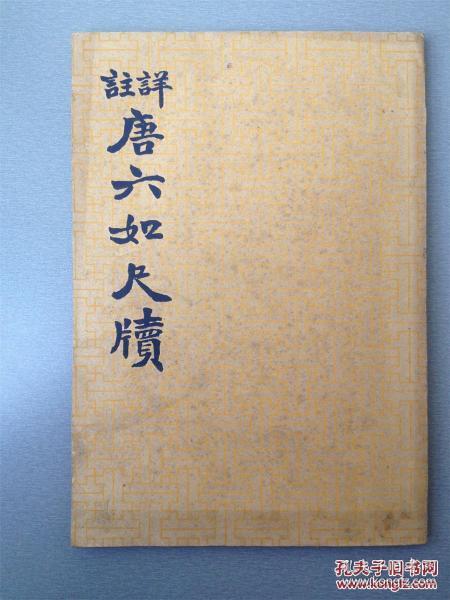 詳註
唐六如尺牘
孔夫子旧书网
www.kongfz.com